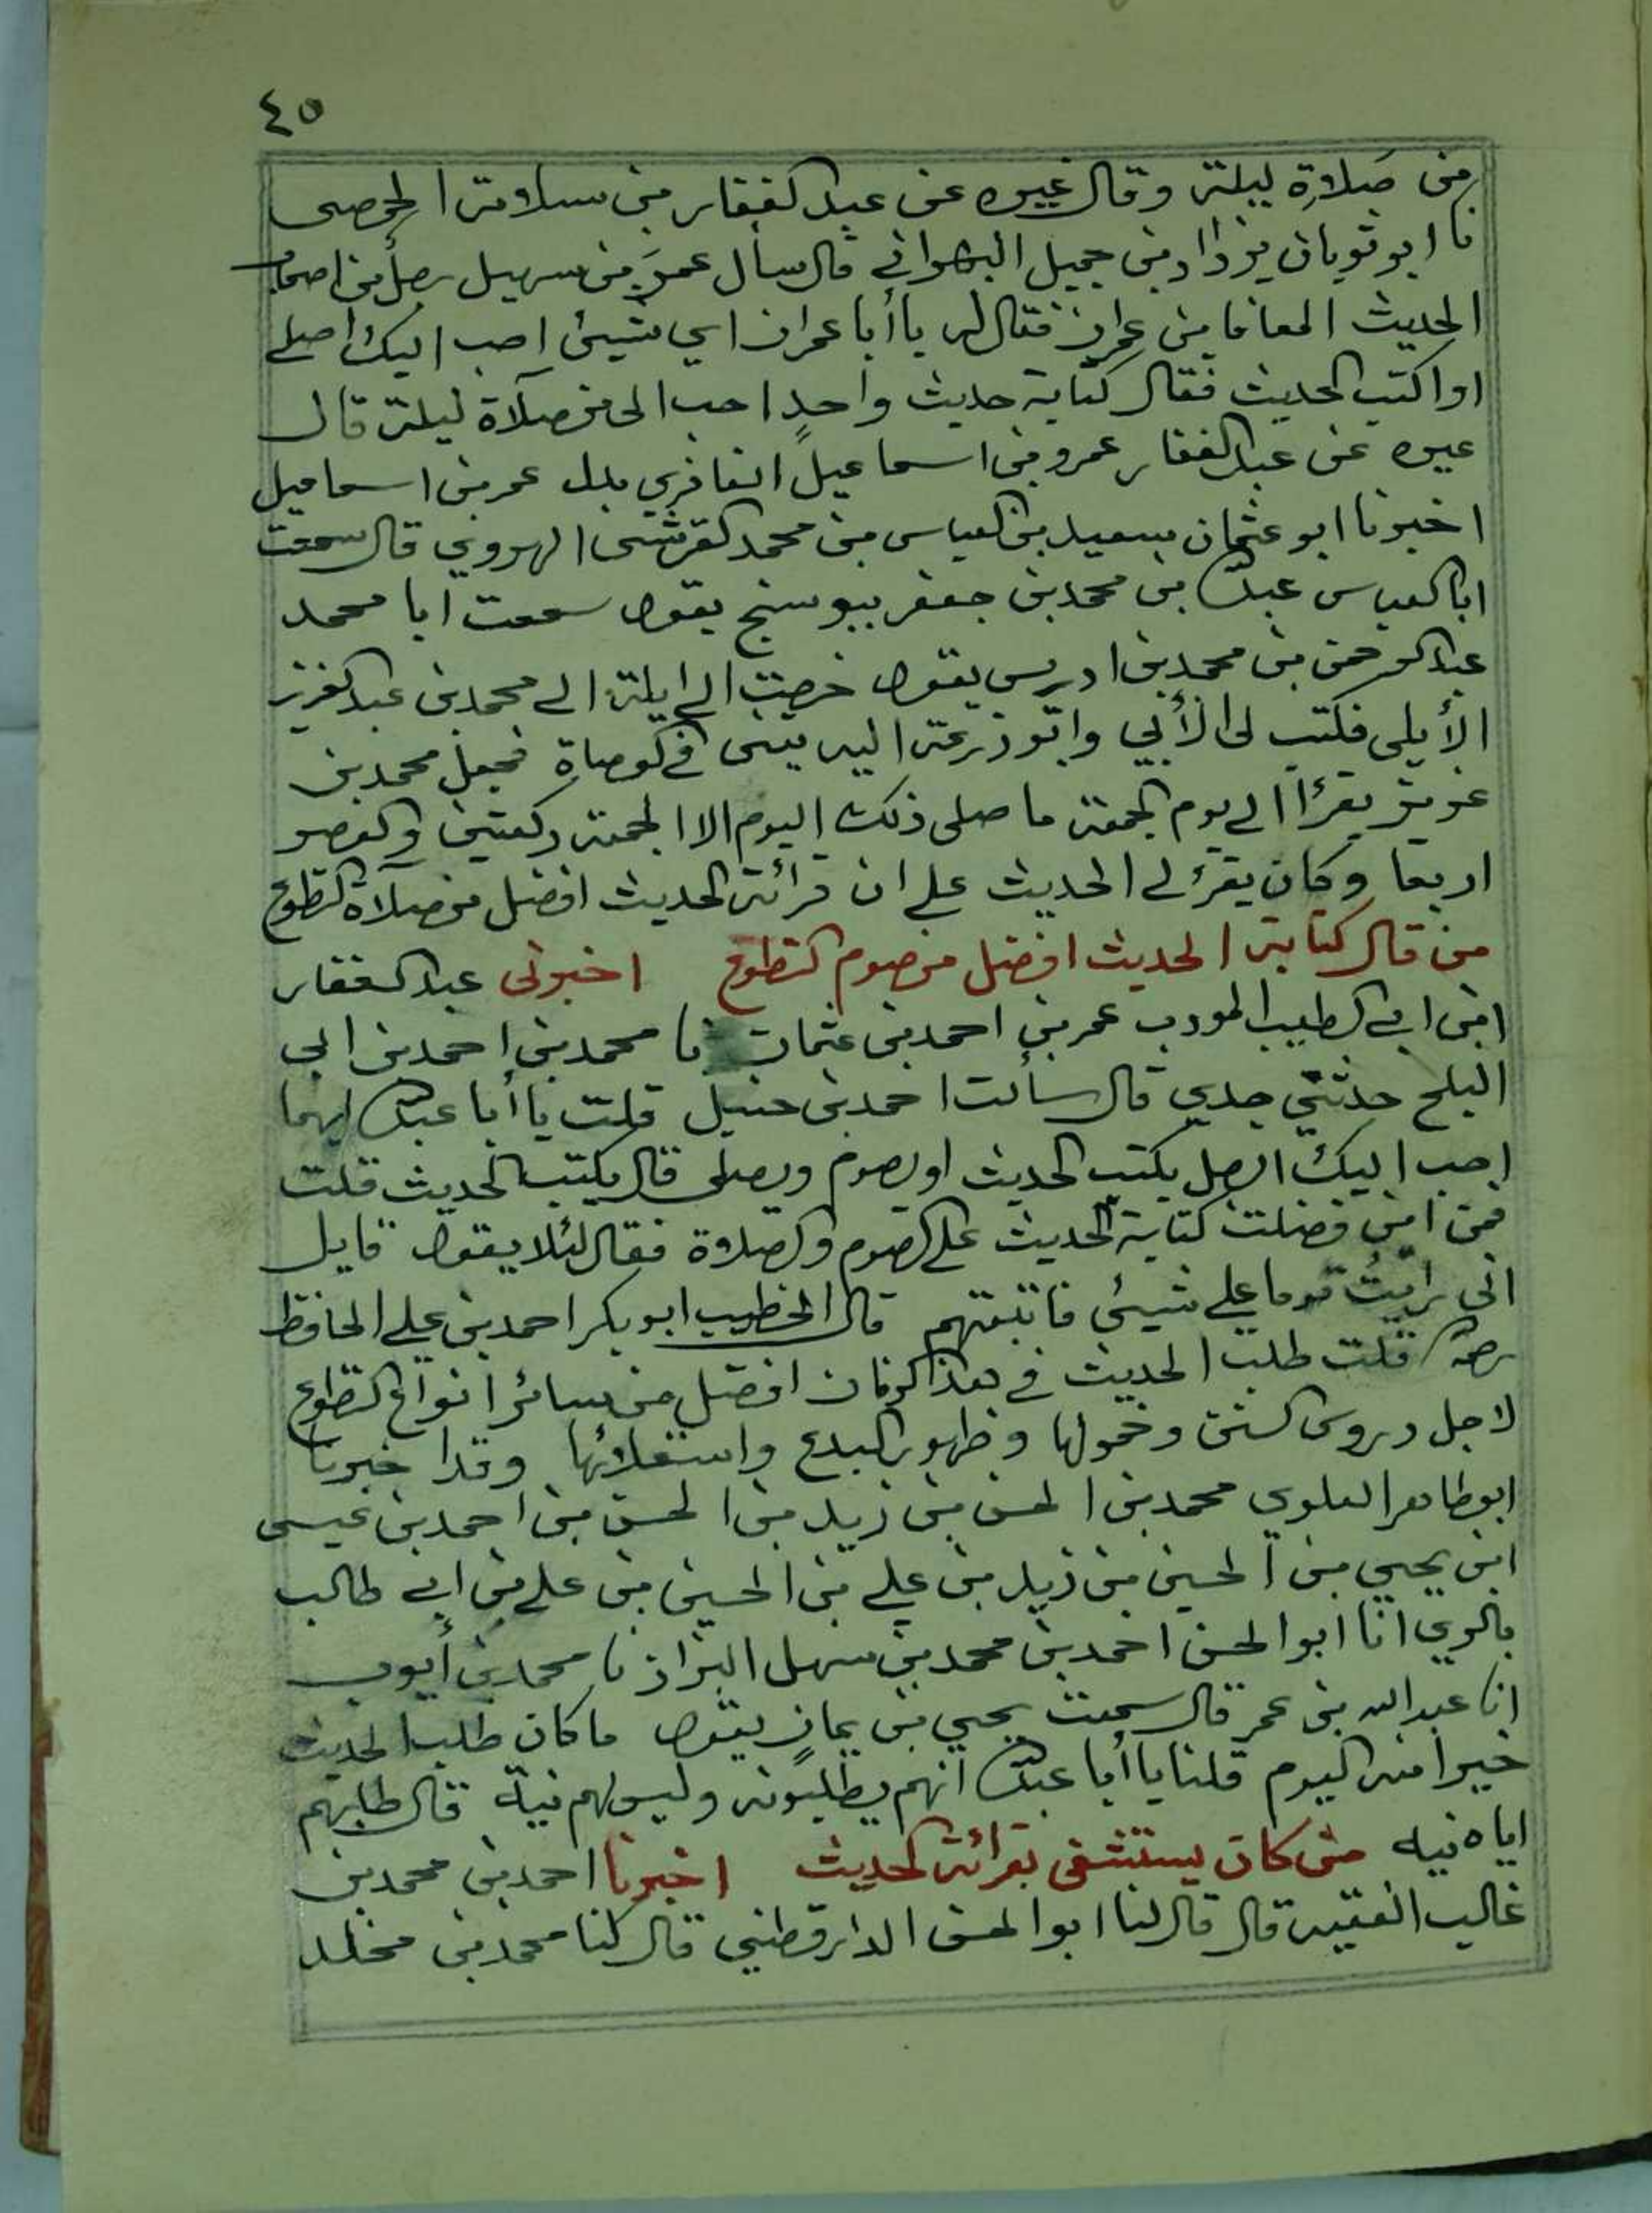 ٤٥
من صَلاةِ ليلة وقال غيره عن عبد الغفار بن سلامة الحمصي
نا ابو ثوبان يزداد بن جميل البهراني قال سأل عمرَو بن سهيل رجلٌ من اصحاب
الحديث المعافا بن عمران فقال له يا أبا عمران اي شيئ احب اليك اصلے
او اكتب الحديث فقال كتابة حديث واحدٍ احب الى من صلآة ليلة قال
غيره عن عبد الغفار عمرو بن اسماعيل الغافري بدل عمر بن اسماعيل
اخبرنا ابو عثمان سعيد بن العباس بن محمد القرشى الهروي قال سمعت
ابا العباس عبد الله بن محمد بن جعفر ببوسنج يقول سمعت ابا محمد
عبد الرحمن بن محمد بن ادريس يقول خرجت الے ايلة الے محمد بن عبد العزيز
الأيلي فكتب لى الأبي وابو زرعة اليه يعنى فے الوصاةِ فجعل محمد بن
عزيز يقرأ الے يوم الجمعة ما صلى ذلك اليوم الا الجمعة ركعتين والعصر
اربعا وكان يقرء لے الحديث علے ان قرائة الحديث افضل من صلآة التطوع
من قال كتابة الحديث افضل من صوم التطوع اخبرنى عبد الغفار
ابن ابے الطيب المودب عمر بن احمد بن عثمان نا محمد بن احمد بن ابى
الثلج حدثني جدي قال سألت احمد بن حنبل قلت يا أبا عبد الله ايهما
احب اليك الرجل يكتب الحديث او يصوم ويصلى قال يكتب الحديث قلت
فمن اين فضلت كتابة الحديث علے الصوم والصلاوة فقال لئلا يقول قايل
انى رايتُ قوما علے شيئ فاتبعتهم قال الخطيب ابو بكر احمد بن علے الحافظ
رحمه الله قلت طلب الحديث فے هذا الزمان افضل من سائر انواع التطوع
لاجل دروس السنن وخمولها وظهور البدع واستعلائها وقد اخبرنا
ابو طاهر العلوي محمد بن الحسن بن زيد بن الحسن بن احمد بن عيسى
ابن يحيي بن الحسين بن زيد بن علے بن الحسين بن علے بن ابے طالب
بالري انا ابو الحسن احمد بن محمد بن سهل البزاز نا محمد بن أيوب
انا عبد الله بن عمر قال سمعت يحيي بن يمانٍ يقول ما كان طلب الحديث
خيرا منه اليوم قلنا يا أبا عبد الله انهم يطلبونه وليس لهم نية قال طلبهم
اياه نيه من كان يستشفى بقرائة الحديث اخبرنا احمد بن محمد بن
غالب الفقيه قال قال لنا ابو الحسن الدارقطني قال كنا محمد بن مخلد